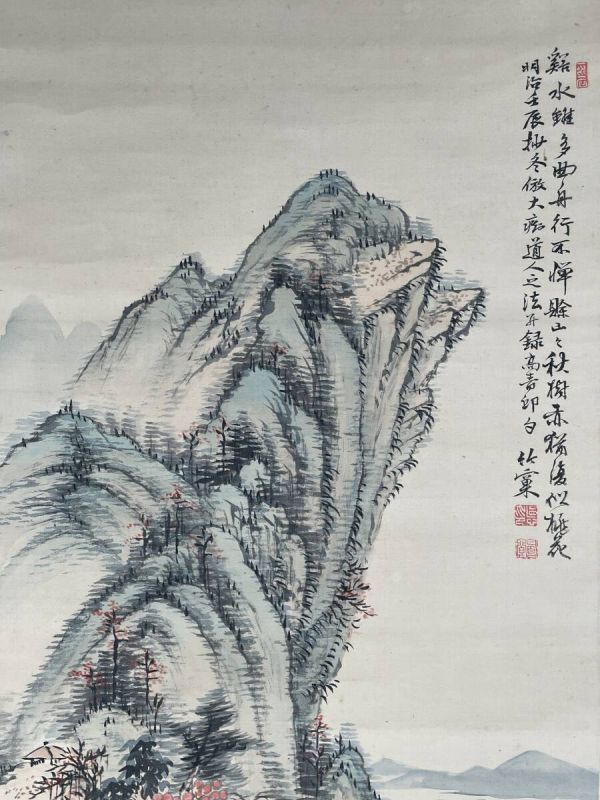 谿水雖多曲舟行不憚賖山々秋樹赤猶復似桃花
明治壬辰杪冬倣大痴道人之法并録高青邱句 竹窠